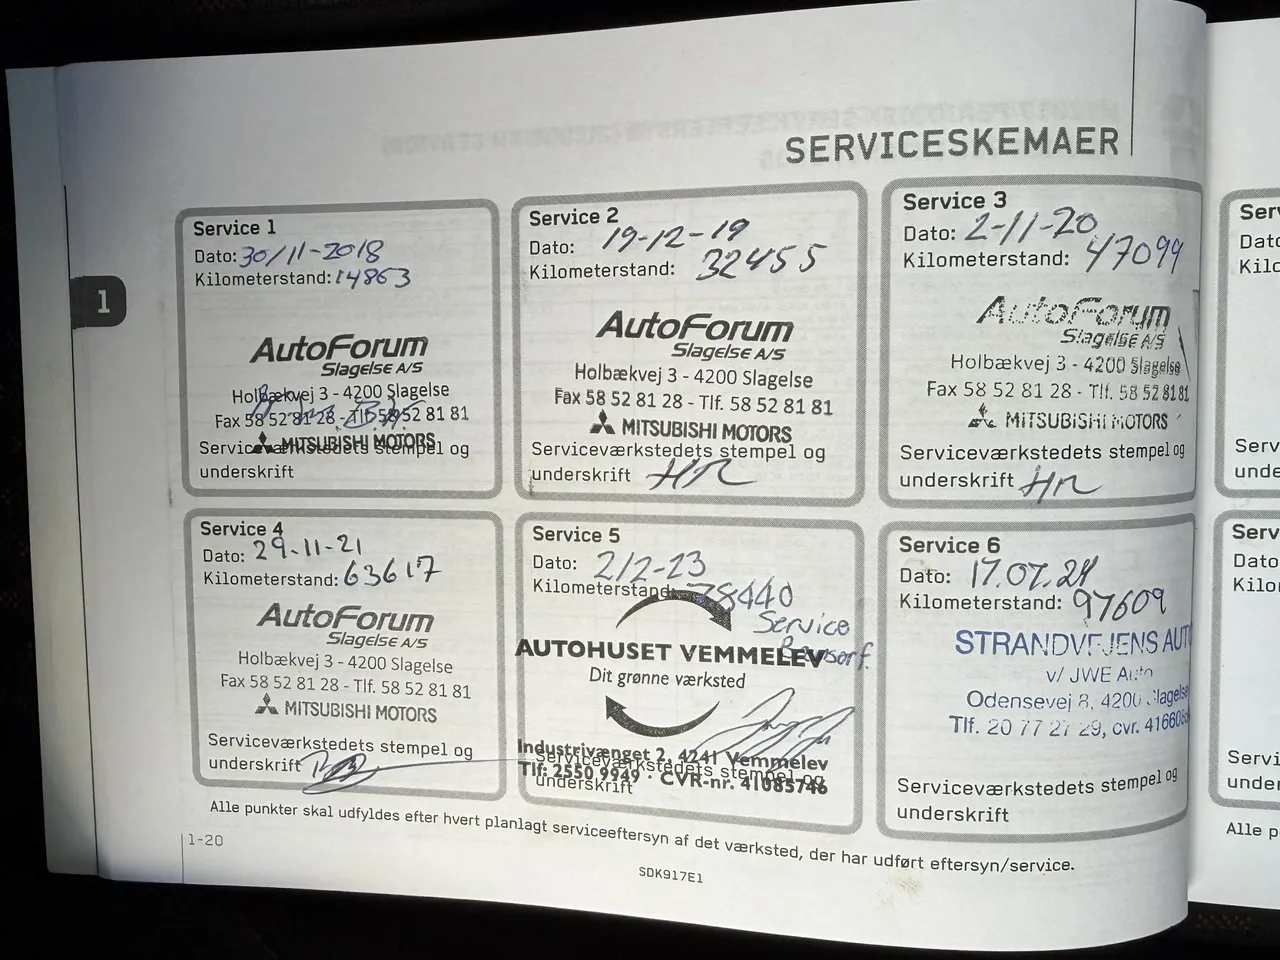 SERVICESKEMAER
1
Service 1
Dato: 30/11-2018
Kilometerstand: 14863
AutoForum
Slagelse A/S
Holbækvej 3 - 4200 Slagelse
Fax 58 52 81 28 - Tlf. 58 52 81 81
MITSUBISHI MOTORS
Serviceværkstedets stempel og
underskrift
Service 2
Dato: 19-12-19
Kilometerstand: 32455
AutoForum
Slagelse A/S
Holbækvej 3 - 4200 Slagelse
Fax 58 52 81 28 - Tlf. 58 52 81 81
MITSUBISHI MOTORS
Serviceværkstedets stempel og
underskrift HR
Service 3
Dato: 2-11-20
Kilometerstand: 47099
AutoForum
Slagelse A/S
Holbækvej 3 - 4200 Slagelse
Fax 58 52 81 28 - Tlf. 58 52 81 81
MITSUBISHI MOTORS
Serviceværkstedets stempel og
underskrift HR
Service 4
Dato: 29-11-21
Kilometerstand: 63617
AutoForum
Slagelse A/S
Holbækvej 3 - 4200 Slagelse
Fax 58 52 81 28 - Tlf. 58 52 81 81
MITSUBISHI MOTORS
Serviceværkstedets stempel og
underskrift
Service 5
Dato: 2/2-23
Kilometerstand: 78440
Service
AUTOHUSET VEMMELEV
Dit grønne værksted
Industrivænget 2, 4241 Vemmelev
Tlf: 2550 9949 · CVR-nr. 41085746
Serviceværkstedets stempel og
underskrift
Service 6
Dato: 17.07.24
Kilometerstand: 97609
STRANDVEJENS AUT
v/ JWE Auto
Odensevej 8, 4200 Slagelse
Tlf. 20 77 27 29, cvr.
Serviceværkstedets stempel og
underskrift
Alle punkter skal udfyldes efter hvert planlagt serviceeftersyn af det værksted, der har udført eftersyn/service.
1-20
SDK917E1
Ser
Dato
Kilo
Serv
unde
Serv
Dato
Kilo
Servi
under
Alle p